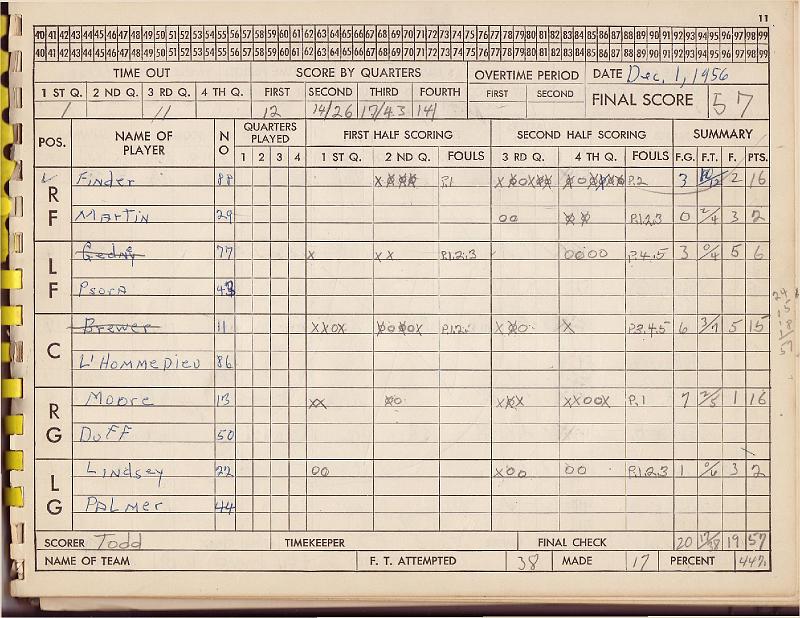 11
40 41 42 43 44 45 46 47 48 49 50 51 52 53 54 55 56 57 58 59 60 61 62 63 64 65 66 67 68 69 70 71 72 73 74 75 76 77 78 79 80 81 82 83 84 85 86 87 88 89 90 91 92 93 94 95 96 97 98 99
40 41 42 43 44 45 46 47 48 49 50 51 52 53 54 55 56 57 58 59 60 61 62 63 64 65 66 67 68 69 70 71 72 73 74 75 76 77 78 79 80 81 82 83 84 85 86 87 88 89 90 91 92 93 94 95 96 97 98 99
TIME OUT SCORE BY QUARTERS OVERTIME PERIOD DATE Dec. 1, 1956
1 ST Q. 2 ND Q. 3 RD Q. 4 TH Q. FIRST SECOND THIRD FOURTH FIRST SECOND FINAL SCORE 57
/ // 12 14/26 17/43 14/
POS. NAME OF PLAYER NO QUARTERS PLAYED FIRST HALF SCORING SECOND HALF SCORING SUMMARY
1 2 3 4 1 ST Q. 2 ND Q. FOULS 3 RD Q. 4 TH Q. FOULS F.G. F.T. F. PTS.
RF Finder 88 P.1 P.2 3 2 16
Martin 29 oo P.1.2.3 0 2/4 3 2
LF 77 x x x P.1.2.3 oooo P.4.5 3 0/4 5 6
Psora 43
C Brewer 11 xxox P.1.2. x P.3.4.5 6 3/7 5 15
L'Hommedieu 86
RG Moore 13 P.1 7 2/5 1 16
Duff 50
LG Lindsey 22 oo xoo oo P.1.2.3 1 0/6 3 2
Palmer 44
SCORER Todd TIMEKEEPER FINAL CHECK 20 17/38 19 57
NAME OF TEAM F. T. ATTEMPTED 38 MADE 17 PERCENT 44%